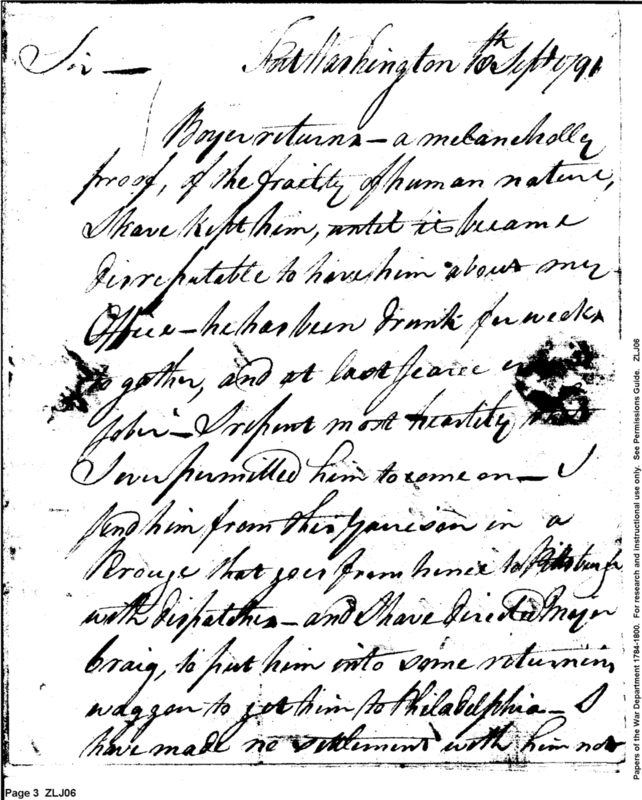 Sir — Fort Washington 10th Sept 1791
Boyer returns — a melancholly
proof, of the frailty of human nature,
I have kept him, until it became
disreputable to have him about my
Office — he has been drunk for weeks
to gather, and at last scarce
sober — I repent most heartily that
I ever permitted him to come on — I
send him from this Garrison in a
Perouge that goes from hence to Pittsburgh
with dispatches — and I have directed Major
Craig, to put him into some returning
waggon to get him to Philadelphia — I
have made no settlement with him nor
Page 3 ZLJ06
Papers of the War Department 1784-1800. For research and instructional use only. See Permissions Guide. ZLJ06